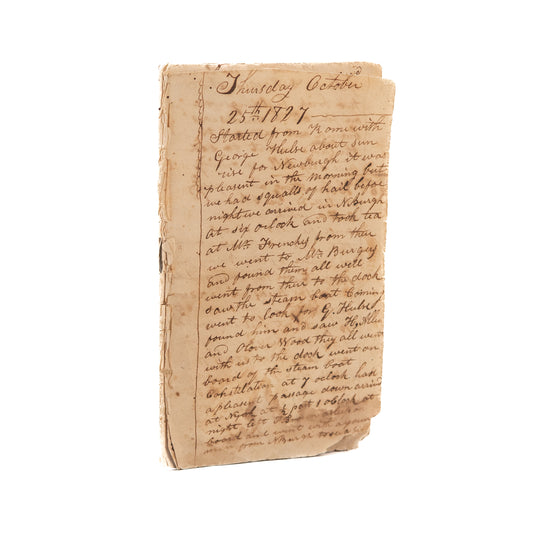 Thursday October
25th 1827
Started from Home with
George Hulse about sun
rise for Newburgh it was
pleasant in the morning but
we had squalls of hail before
night we arrived in NBurgh
at six oclock and took tea
at Mr Frenchs from there
we went to Mr Burgess
and found them all well
went from ther to the dock
saw the steam boat Coming
went to look for G. Hulse
found him and saw
and Oliver Wood they all went
with us to the dock went on
board of the steam boat
Constellation at 7 oclock had
a pleasant passage down arrived
at at ½ past 1 oclock at
night left
board and went with a young
man from NBurgh